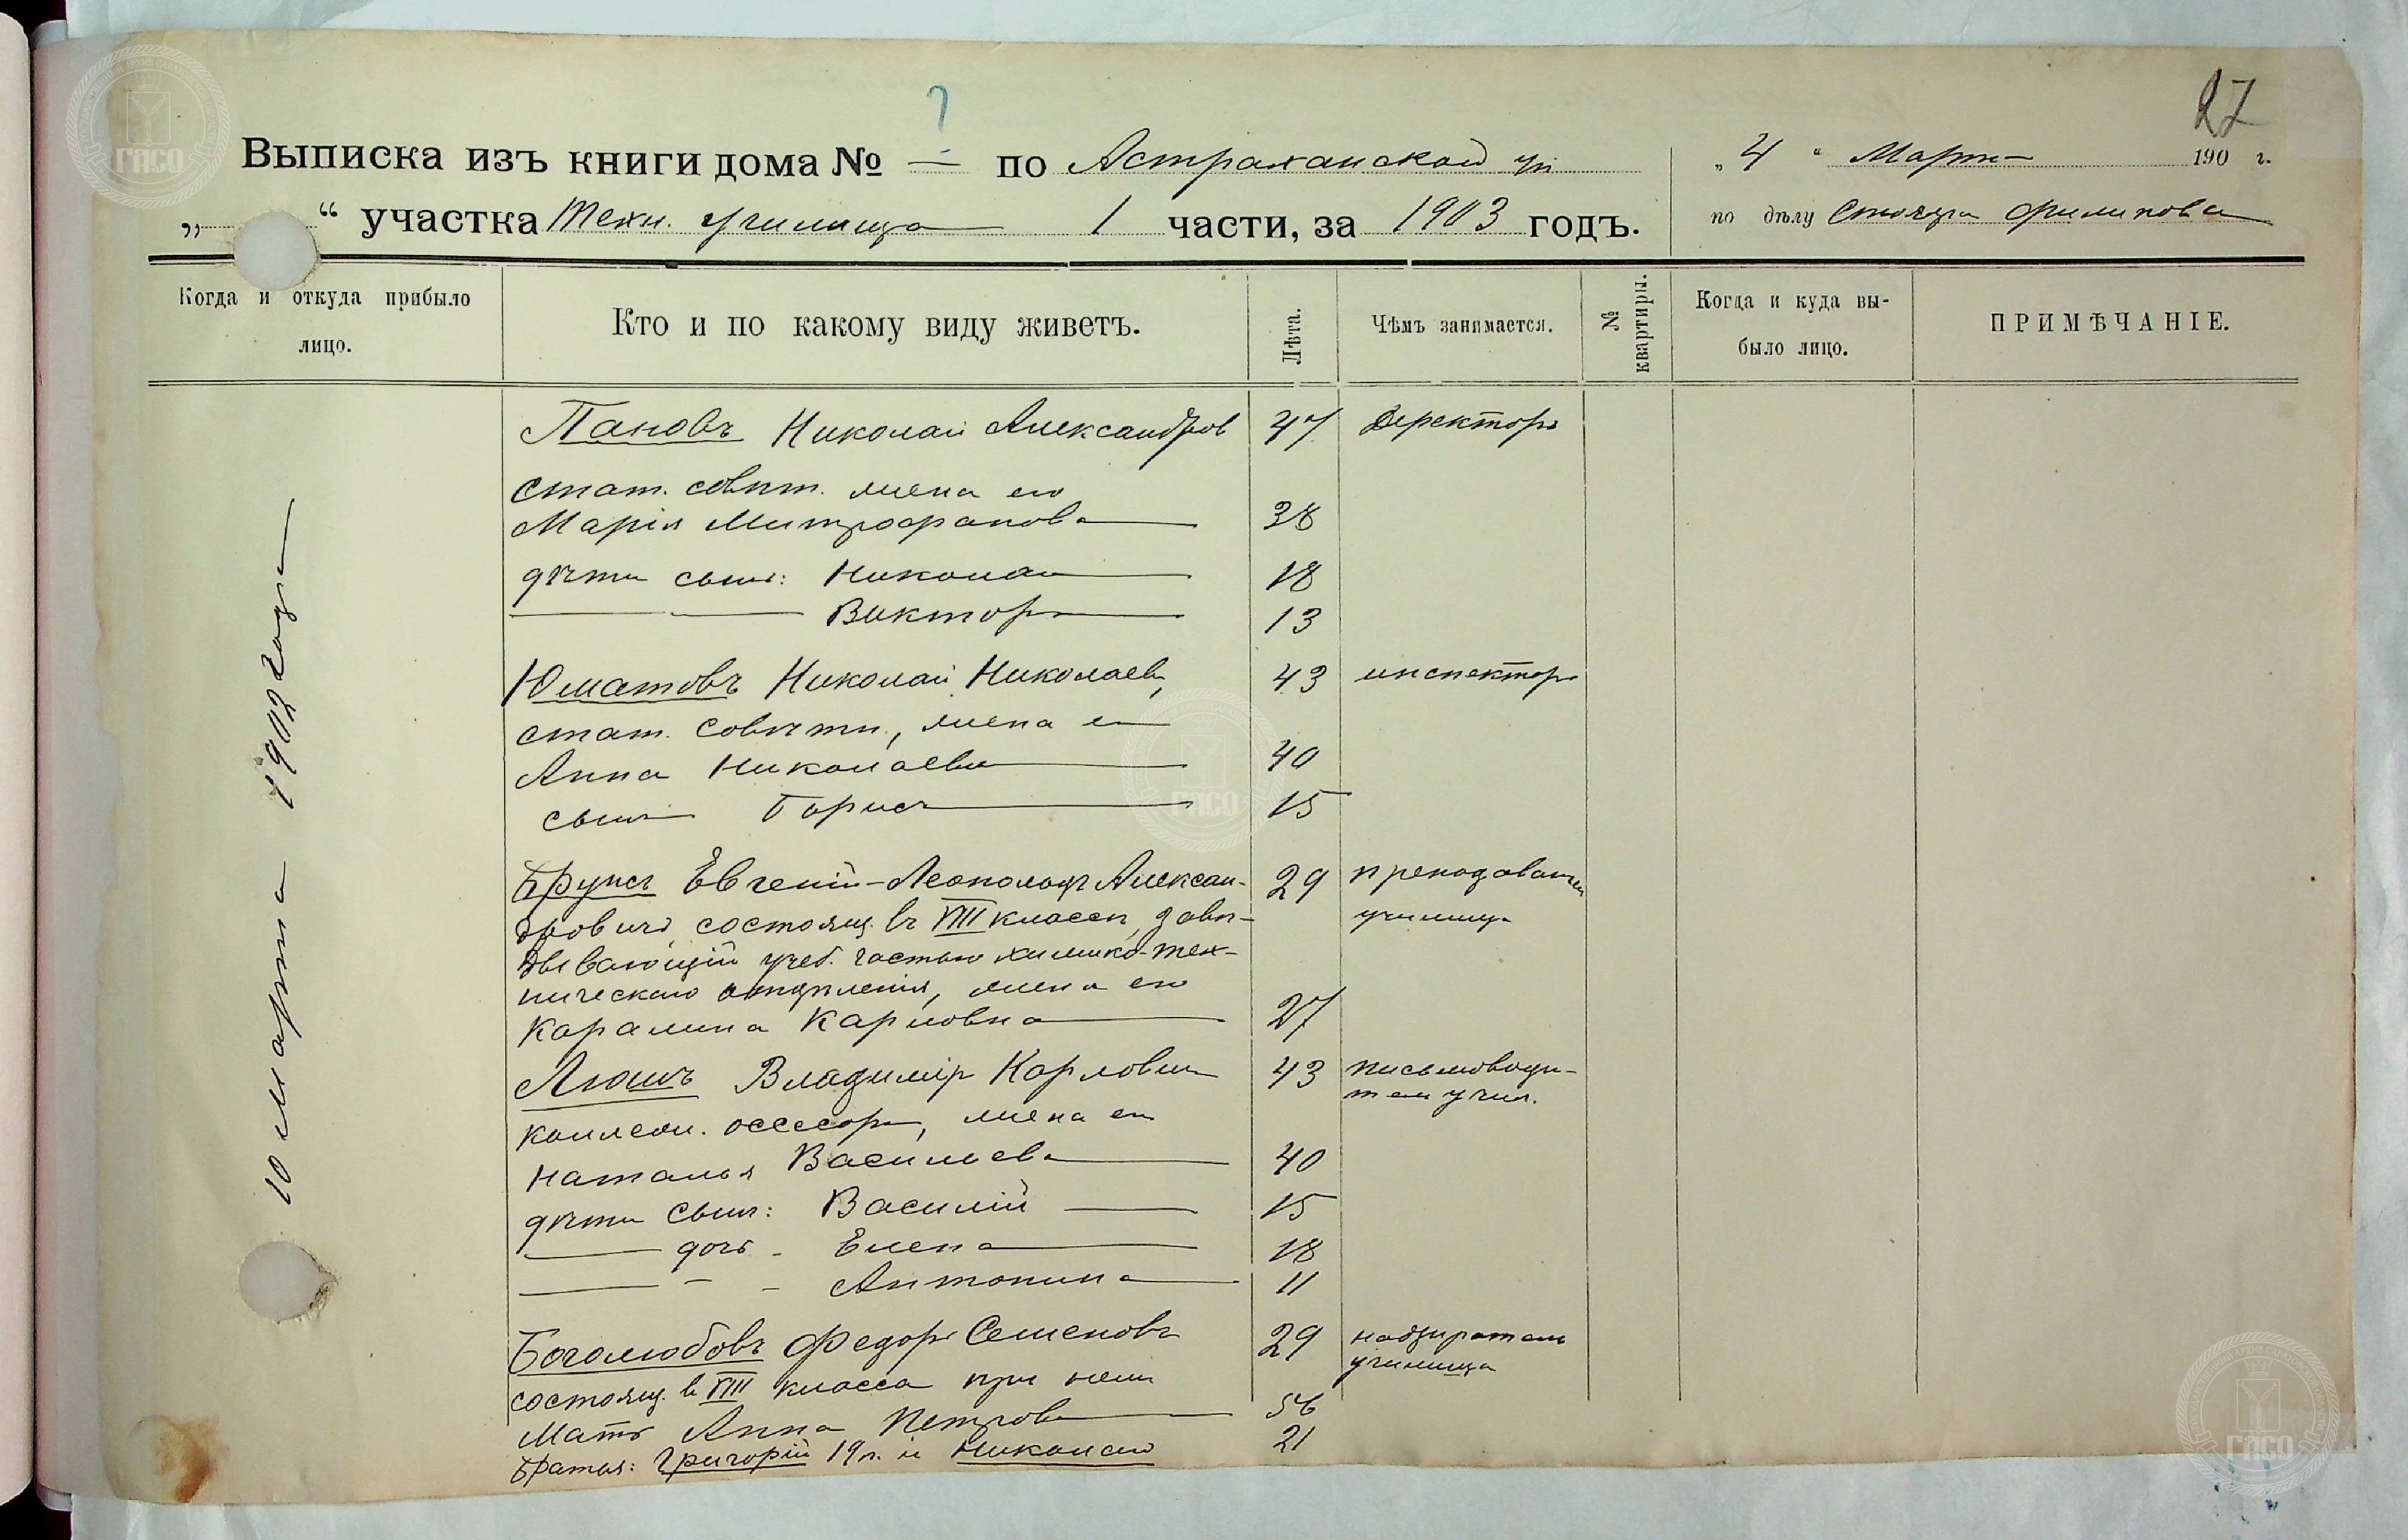 27
?
Выписка изъ книги дома № – по Астраханской ул
„ “ участка Техн. училища 1 части, за 1903 годъ.
„ 4 “ Марта 190 г.
по дѣлу Филипова
Когда и откуда прибыло лицо.
Кто и по какому виду живетъ.
Лѣта.
Чѣмъ занимается.
№ квартиры.
Когда и куда выбыло лицо.
ПРИМѢЧАНІЕ.
10 марта 1902 года
Пановъ Николай Александров 47 Деректоръ
стат. совѣт. жена его
Марія Митрофанова 38
дѣти сынъ: Николай 18
Викторъ 13
Юматовъ Николай Николаев, 43 инспекторъ
стат. совѣтн., жена ег
Анна Николаева 40
сынъ Борисъ 15
Брунсъ Евгеній-Леопольдъ Алексан- 29 преподаватель
дровичъ состоящ. въ VIII классѣ, завѣ- училища
дывающій учеб. частью химико-тех-
ническаго отдѣленія, жена его
Каралина Карловна 27
Люшъ Владиміръ Карлович 43 письмоводи-
коллеж. осессоръ, жена ег тель учил.
Наталья Васильева 40
дѣти сынъ: Василій 15
дочь - Елена 18
- - Антонина 11
Боголюбовъ Федоръ Семеновъ 29 надзиратель
состоящ. въ VIII класса при немъ училища
Мать Анна Петрова 56
Братья: Григорій 19 л. и Николай 21
ГАСО
ГАСО
ГАСО